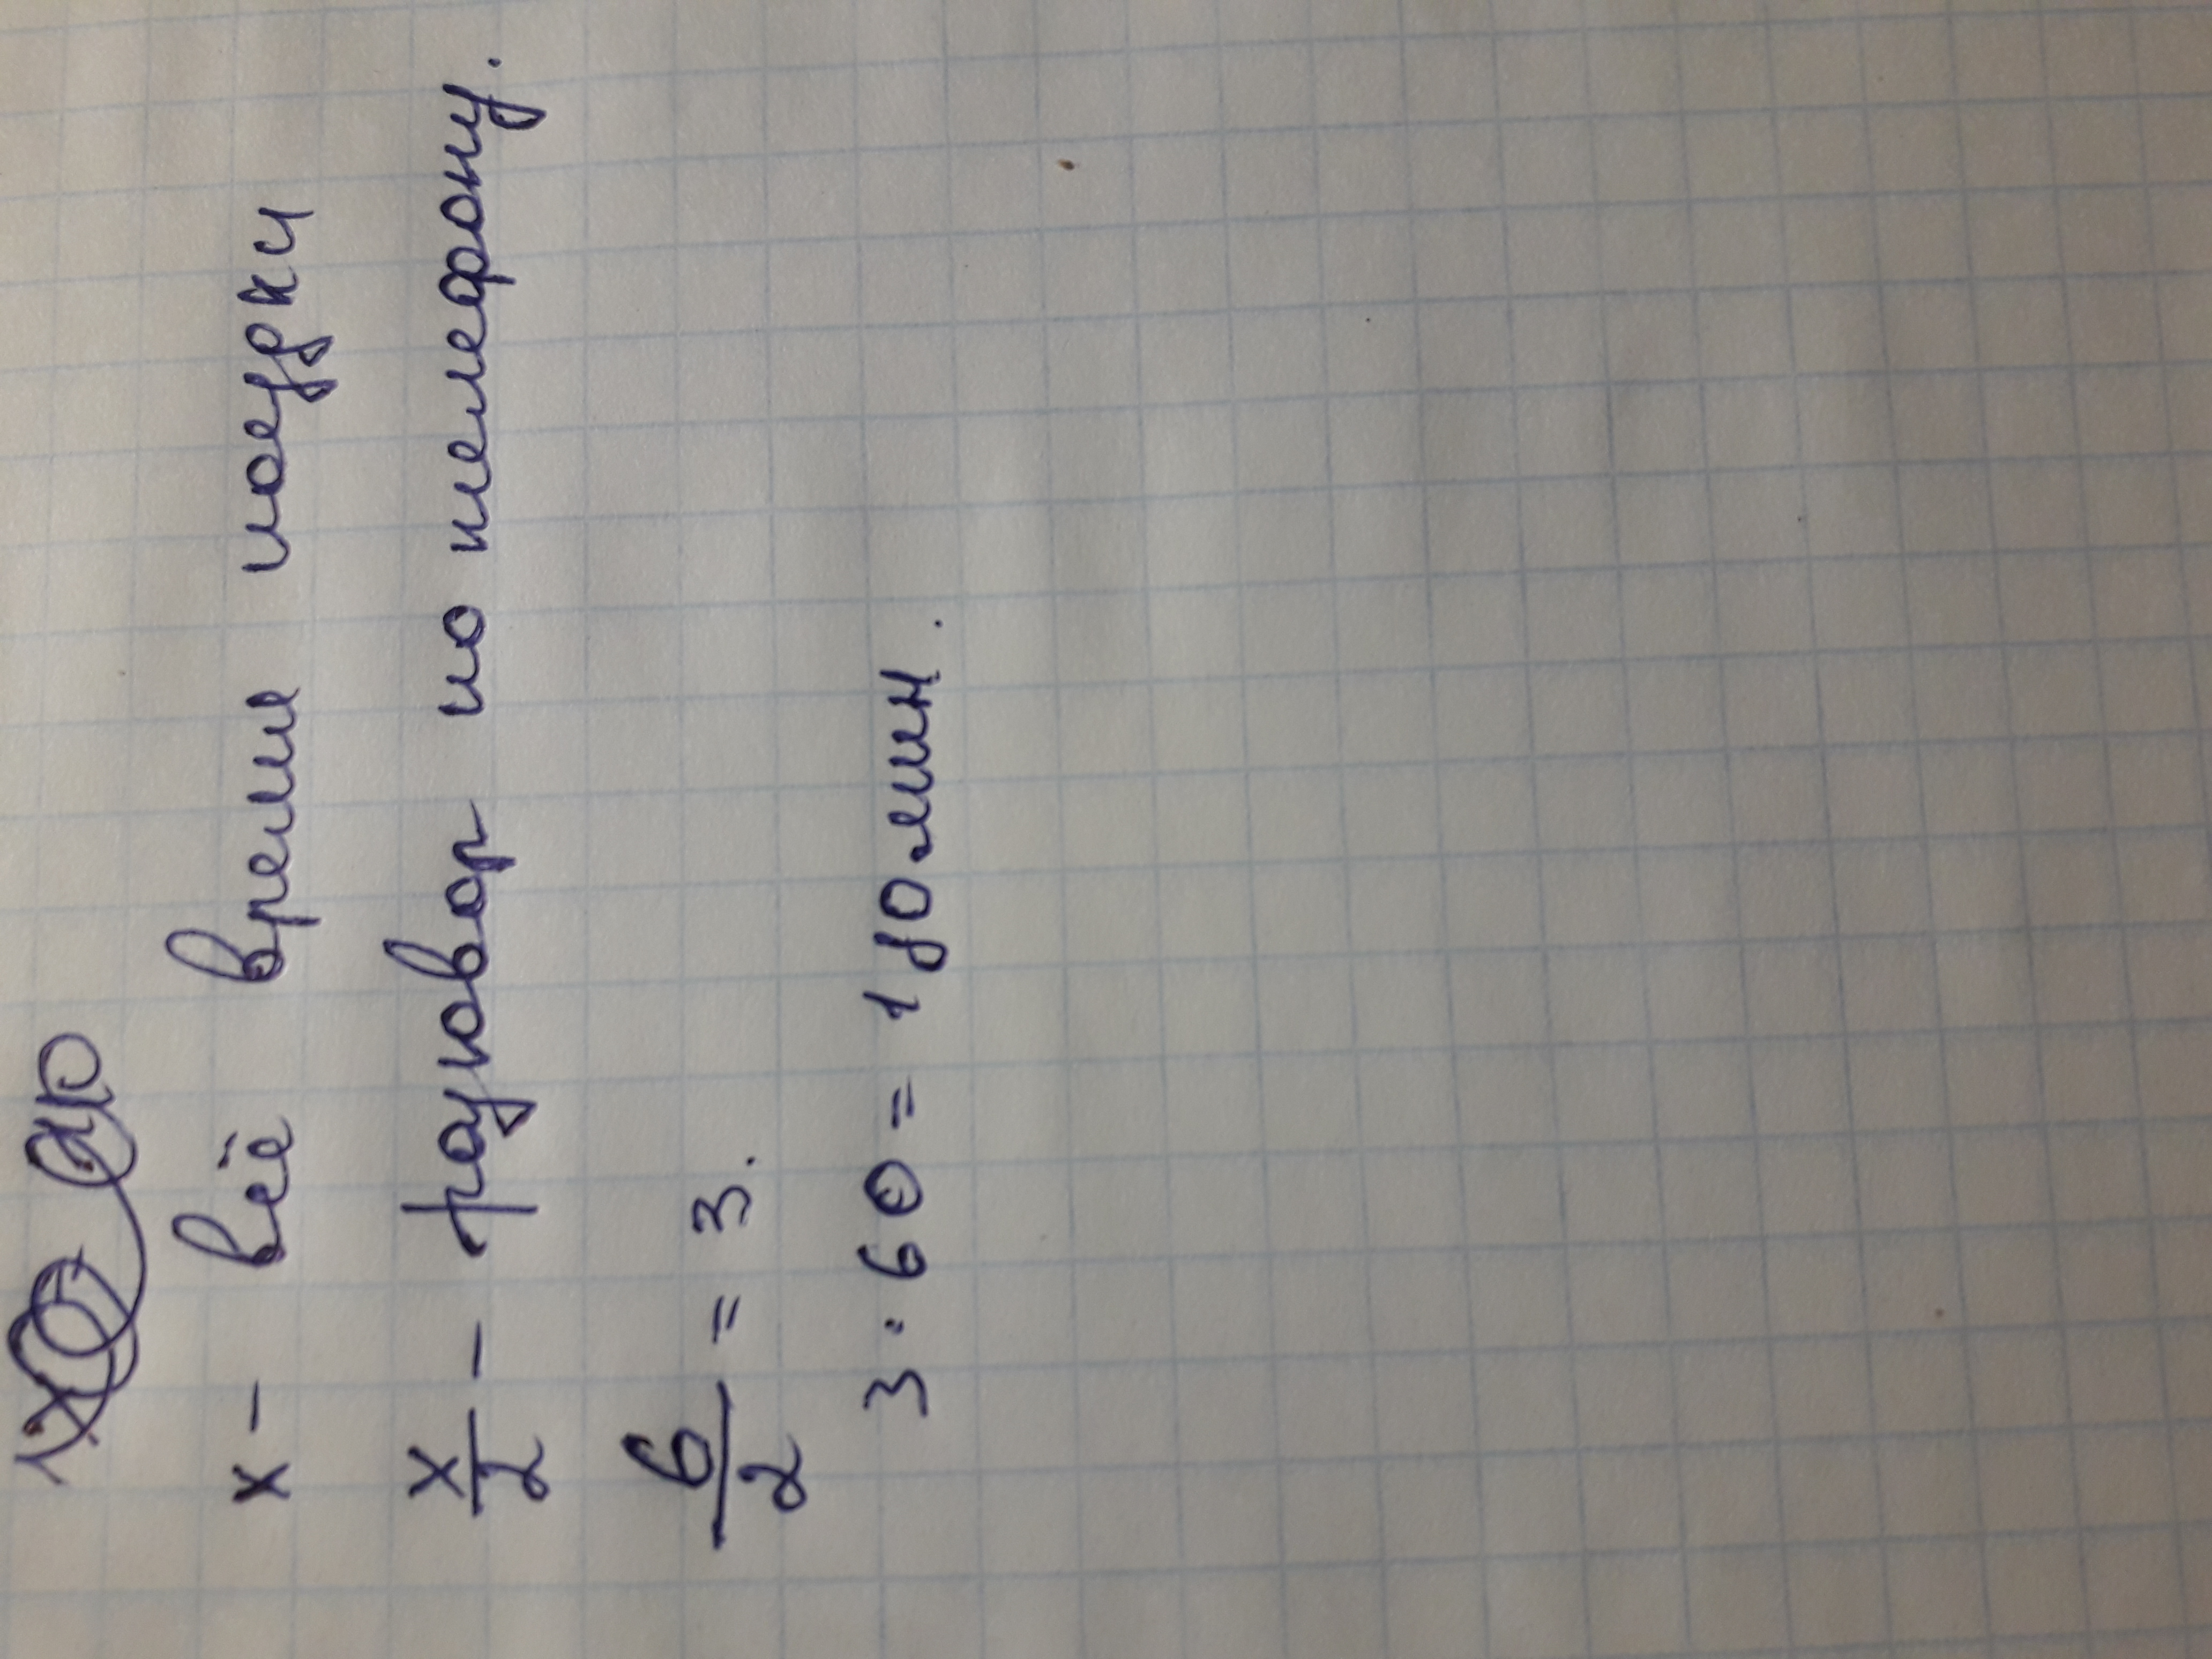 x - всё время поездки
x/2 - разговор по телефону.
6/2 = 3.
3 · 60 = 180 мин.